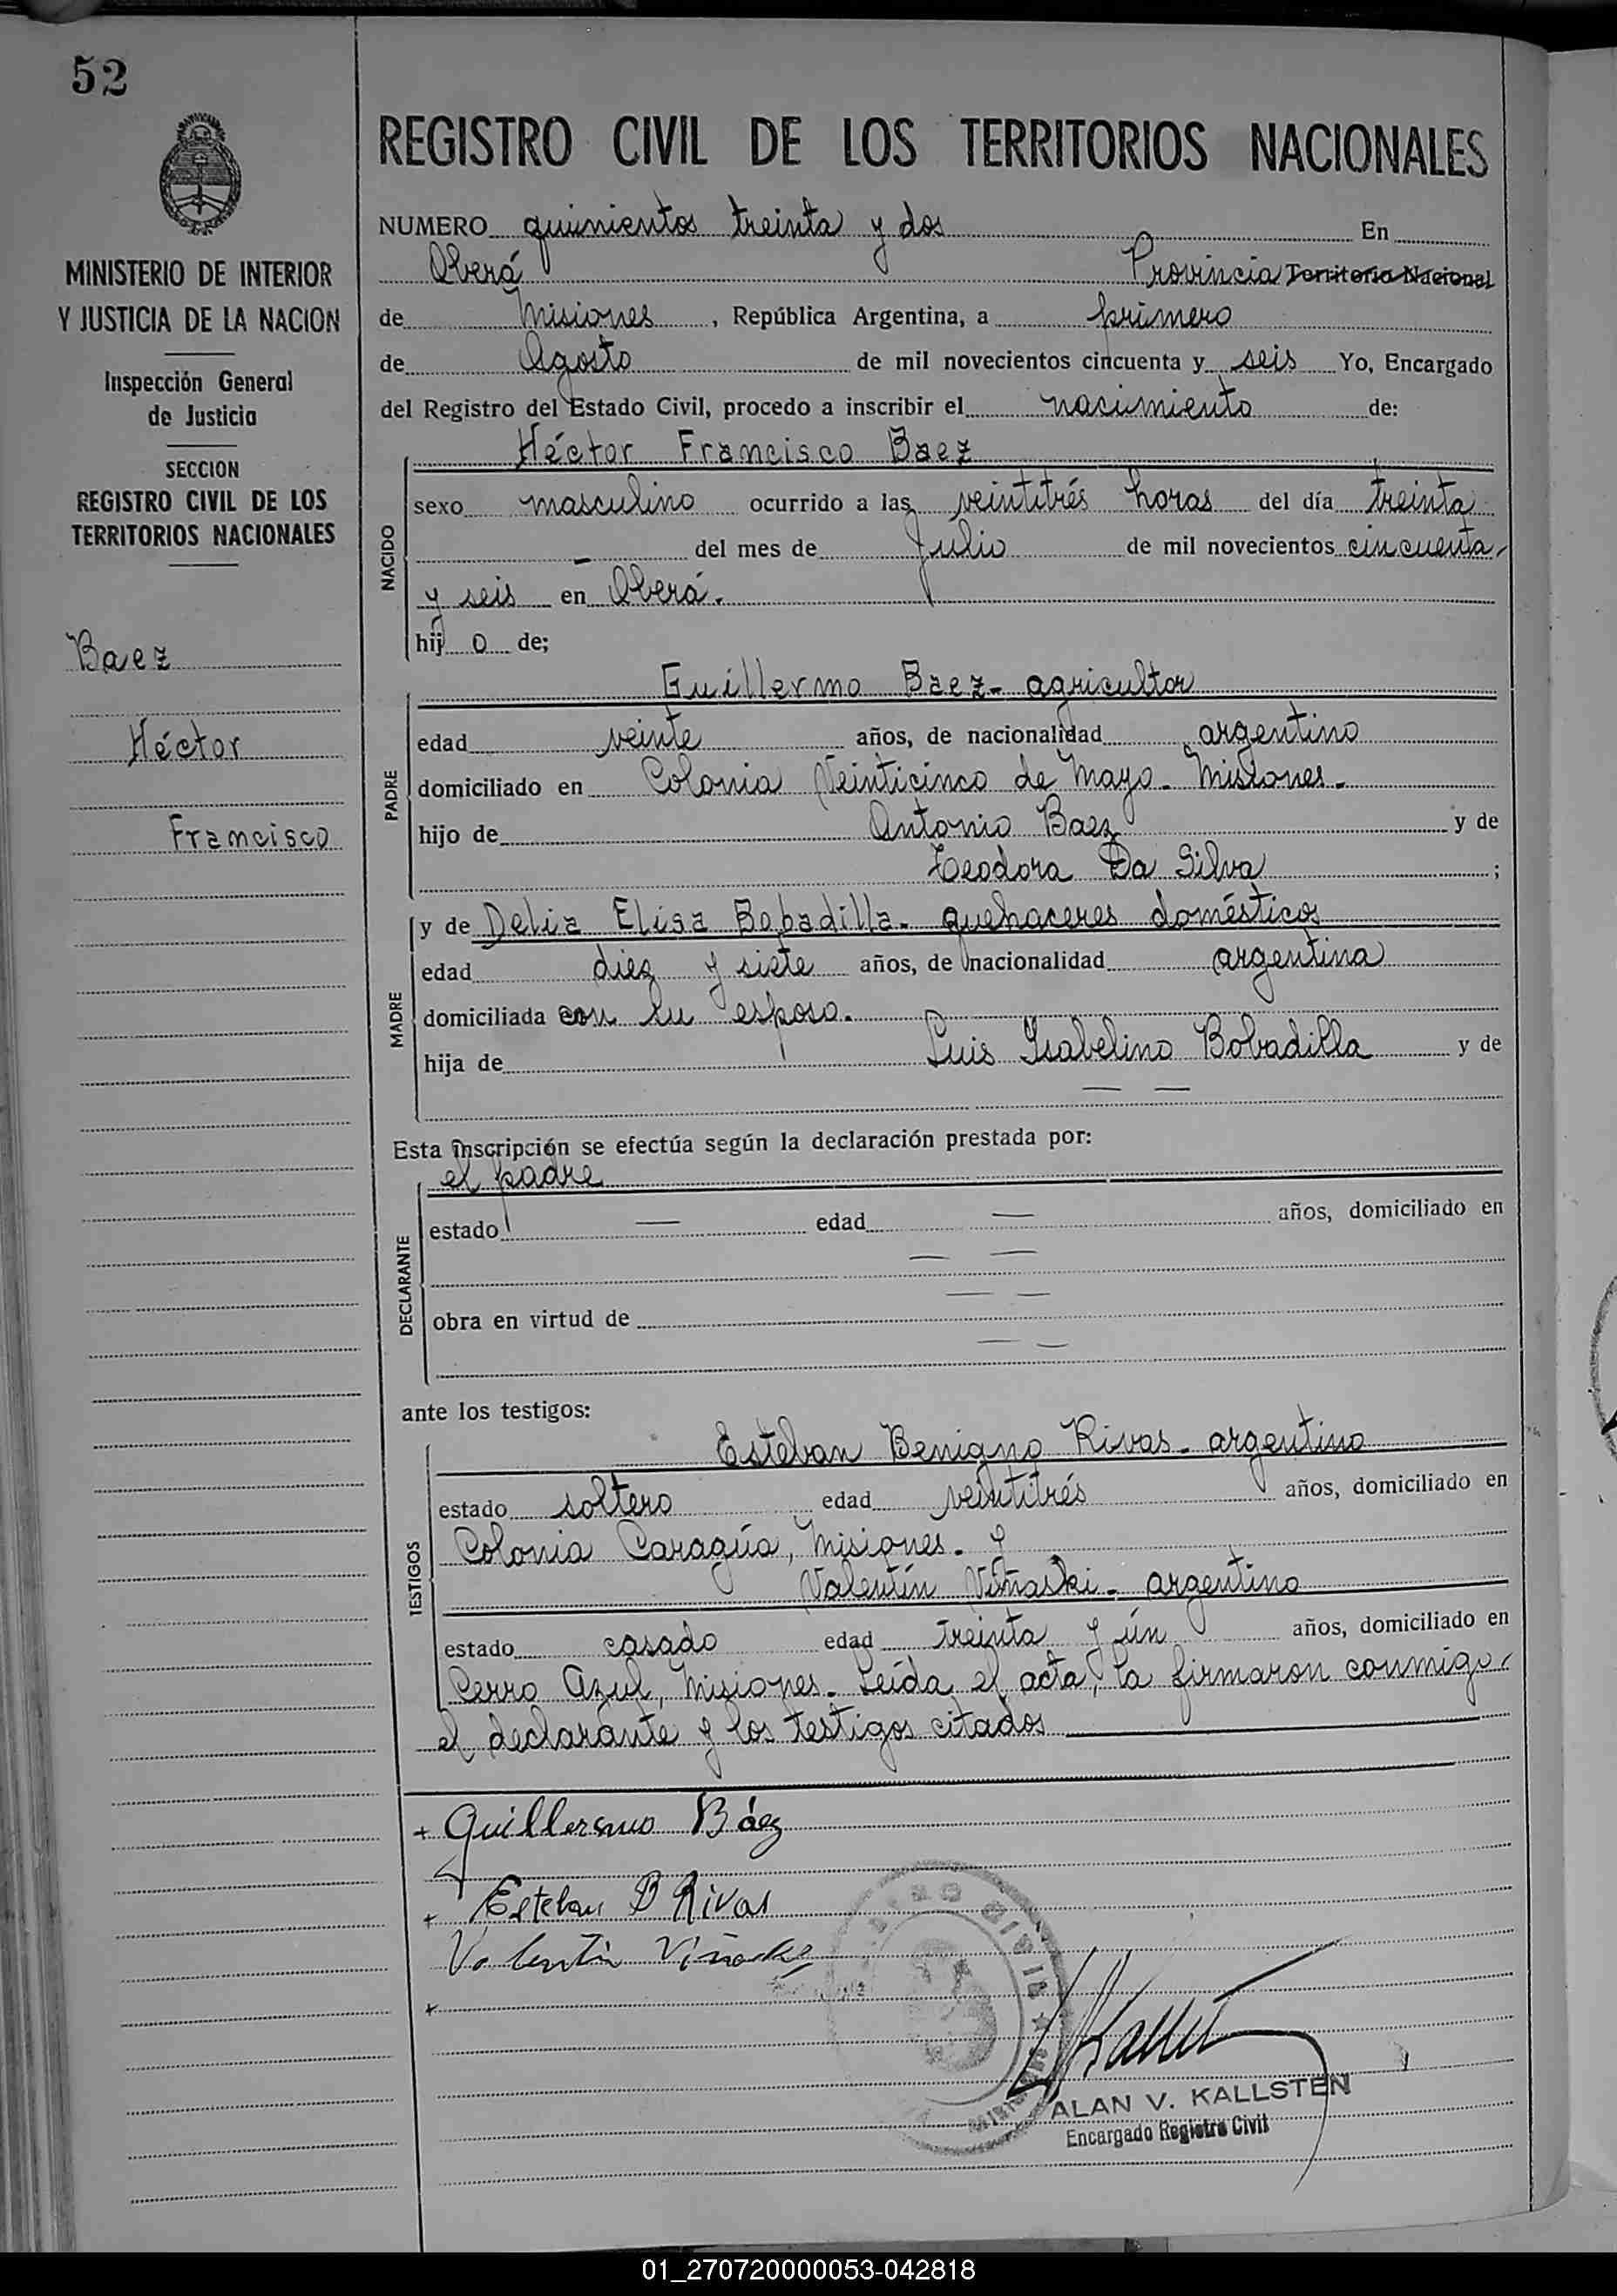 52
MINISTERIO DE INTERIOR
Y JUSTICIA DE LA NACION
Inspección General
de Justicia
SECCION
REGISTRO CIVIL DE LOS
TERRITORIOS NACIONALES
Baez
Héctor
Francisco
REGISTRO CIVIL DE LOS TERRITORIOS NACIONALES
NUMERO quinientos treinta y dos En
Oberá Provincia Territorio Nacional
de Misiones, República Argentina, a primero
de Agosto de mil novecientos cincuenta y seis Yo, Encargado
del Registro del Estado Civil, procedo a inscribir el nacimiento de:
Héctor Francisco Baez
NACIDO
sexo masculino ocurrido a las veintitrés horas del día treinta
– del mes de Julio de mil novecientos cincuenta
y seis en Oberá.
hij o de;
PADRE
Guillermo Baez- agricultor
edad veinte años, de nacionalidad argentino
domiciliado en Colonia Veinticinco de Mayo- Misiones-
hijo de Antonio Baez y de
Teodora Da Silva ;
MADRE
y de Delia Elisa Bobadilla- quehaceres domésticos
edad diez y siete años, de nacionalidad argentina
domiciliada con su esposo.
hija de Luis Ysabelino Bobadilla y de
— —
Esta inscripción se efectúa según la declaración prestada por:
el padre
DECLARANTE
estado — edad — años, domiciliado en
— —
obra en virtud de — —
— —
ante los testigos:
TESTIGOS
Esteban Benigno Rivas- argentino
estado soltero edad veintitrés años, domiciliado en
Colonia Caraguía, Misiones- y
Valentín Viñaski- argentino
estado casado edad treinta y ún años, domiciliado en
Cerro Azul, Misiones- Leída el acta, la firmaron conmigo
el declarante y los testigos citados
+ Guillermo Báez
+ Esteban B Rivas
Valentin Viñaski
+
ALAN V. KALLSTEN
Encargado Registro Civil
01_270720000053-042818